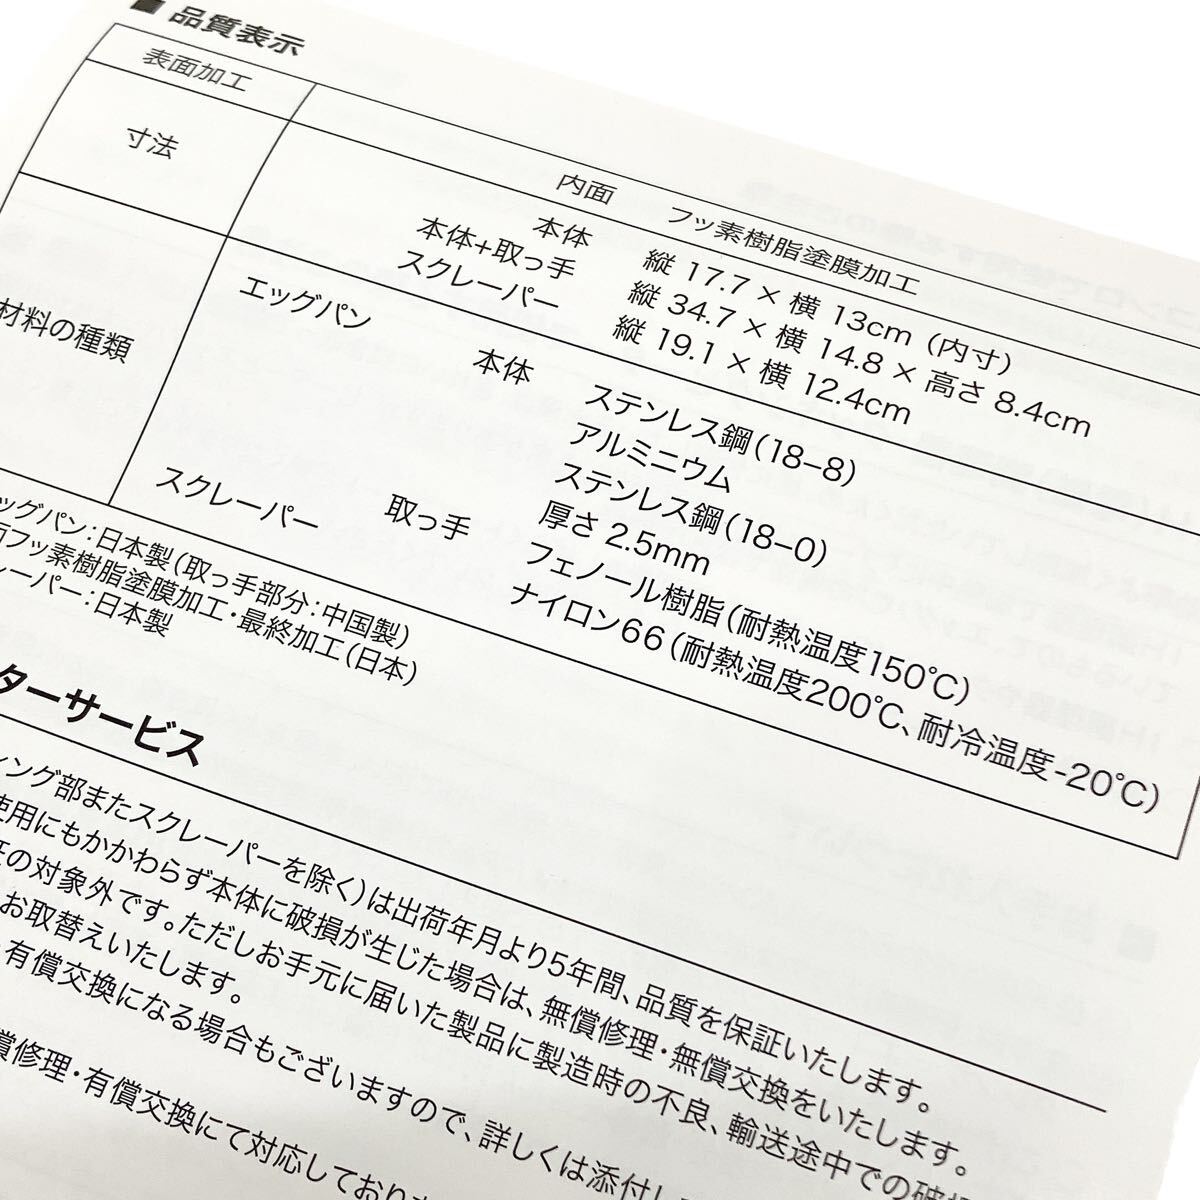 ■ 品質表示
表面加工
内面 フッ素樹脂塗膜加工
寸法
本体 縦 17.7 × 横 13cm (内寸)
本体+取っ手 縦 34.7 × 横 14.8 × 高さ 8.4cm
スクレーパー 縦 19.1 × 横 12.4cm
材料の種類
エッグパン 本体 ステンレス鋼(18-8)
アルミニウム
ステンレス鋼(18-0)
厚さ 2.5mm
取っ手 フェノール樹脂(耐熱温度150℃)
スクレーパー ナイロン66(耐熱温度200℃、耐冷温度-20℃)
ッグパン:日本製(取っ手部分:中国製)
フッ素樹脂塗膜加工・最終加工(日本)
レーパー:日本製
ターサービス
ィング部またスクレーパーを除く)は出荷年月より5年間、品質を保証いたします。
使用にもかかわらず本体に破損が生じた場合は、無償修理・無償交換をいたします。
の対象外です。ただしお手元に届いた製品に製造時の不良、輸送途中での破損
お取替えいたします。
・有償交換になる場合もございますので、詳しくは添付し
償修理・有償交換にて対応しており